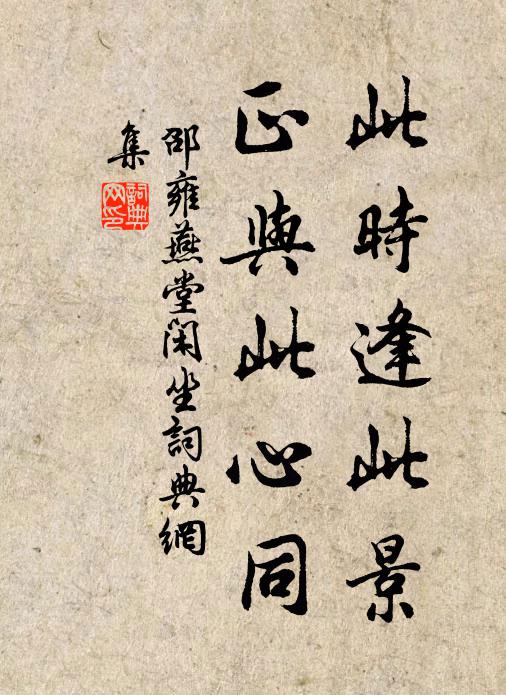 此時逢此景
正與此心同
邵雍燕堂閑坐詞典網
集
詞典
网印